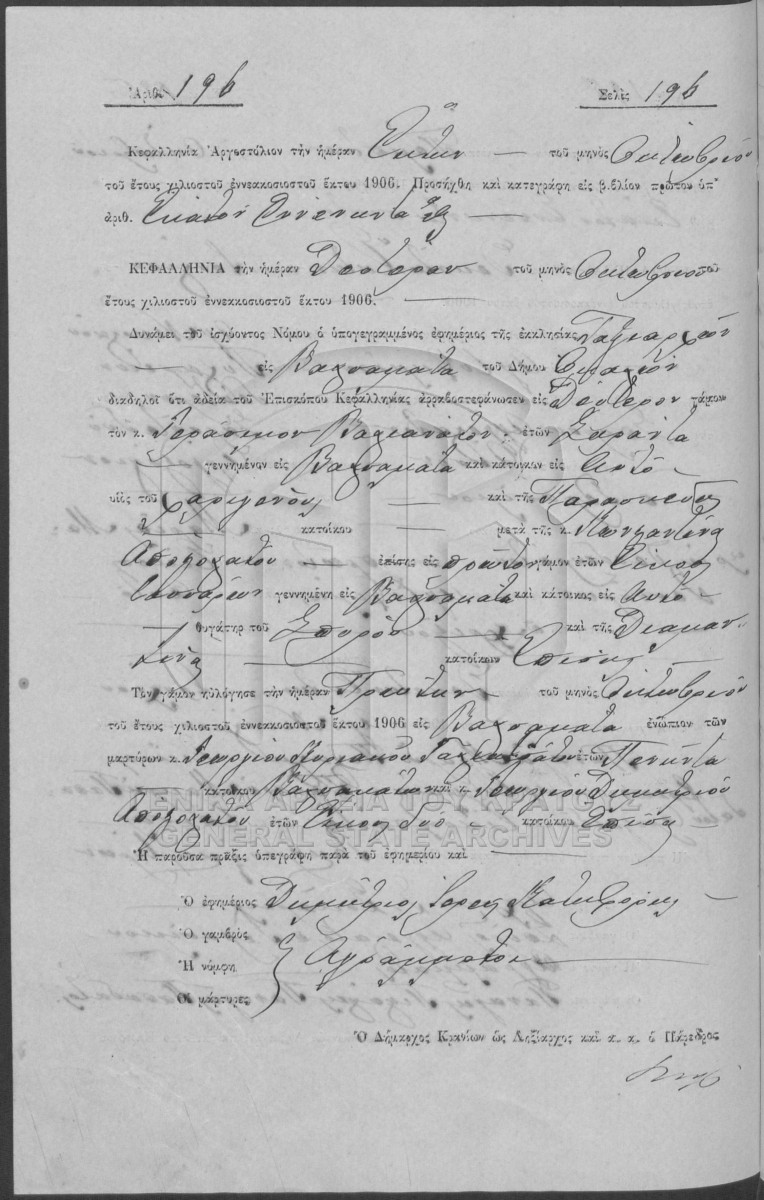 Ἀριθ. 196 Σελὶς 196
Κεφαλληνία Ἀργοστόλιον τὴν ἡμέραν Ἕκτην — τοῦ μηνὸς Ὀκτωβρίου
τοῦ ἔτους χιλιοστοῦ ἐννεακοσιοστοῦ ἕκτου 1906. Προσήχθη καὶ κατεγράφη εἰς βιβλίον πρῶτον ὑπ'
ἀριθ. Ἑκατὸν Ἐνενῆντα ἓξ —
ΚΕΦΑΛΛΗΝΙΑ τὴν ἡμέραν Δευτέραν τοῦ μηνὸς Ὀκτωβρίου τοῦ
ἔτους χιλιοστοῦ ἐννεακοσιοστοῦ ἕκτου 1906. —
Δυνάμει τοῦ ἰσχύοντος Νόμου ὁ ὑπογεγραμμένος ἐφημέριος τῆς ἐκκλησίας Ταξιαρχῶν
— εἰς Βαλσαμάτα τοῦ Δήμου
διαδηλοῖ ὅτι ἀδείᾳ τοῦ Ἐπισκόπου Κεφαλληνίας ἀρραβοστεφάνωσεν εἰς Δεύτερον γάμον
τὸν κ. Γεράσιμον ἐτῶν Σαράντα
— γεννημένον εἰς Βαλσαμάτα καὶ κάτοικον εἰς Αὐτὸ -
υἱὸς τοῦ — καὶ τῆς Παρασκευῆς
— κατοίκου — μετὰ τῆς κ. Κωνσταντίνα
Ἀπολλωνάτου — ἐπίσης εἰς πρῶτον γάμον ἐτῶν Εἴκοσι
τεσσάρων γεννημένη εἰς Βαλσαμάτα καὶ κάτοικος εἰς Αὐτὸ -
— θυγάτηρ τοῦ Σπύρου — καὶ τῆς Διαμαν-
τίνας — κατοίκων Ἐπίσης —
Τὸν γάμον ηὐλόγησε τὴν ἡμέραν Πρώτην τοῦ μηνὸς Ὀκτωβρίου
τοῦ ἔτους χιλιοστοῦ ἐννεακοσιοστοῦ ἕκτου 1906 εἰς Βαλσαμάτα ἐνώπιον τῶν
μαρτύρων κ. Γεωργίου Κυριακοῦ ἐτῶν Πενῆντα
— κατοίκου Βαλσαμάτων καὶ κ. Γεωργίου Δημητρίου
Ἀπολλωνάτου ἐτῶν Εἴκοσι δύο - κατοίκου Ἐπίσης —
Ἡ παροῦσα πρᾶξις ὑπεγράφη παρὰ τοῦ ἐφημερίου καὶ —
Ὁ ἐφημέριος Δημήτριος Ἱερεὺς —
Ὁ γαμβρὸς
Ἡ νύμφη Ἀγράμματοι —
Οἱ μάρτυρες
Ὁ Δήμαρχος Κρανίων ὡς Ληξίαρχος καὶ α. α. ὁ Πάρεδρος
ΓΕΝΙΚΑ ΑΡΧΕΙΑ ΤΟΥ ΚΡΑΤΟΥΣ
GENERAL STATE ARCHIVES